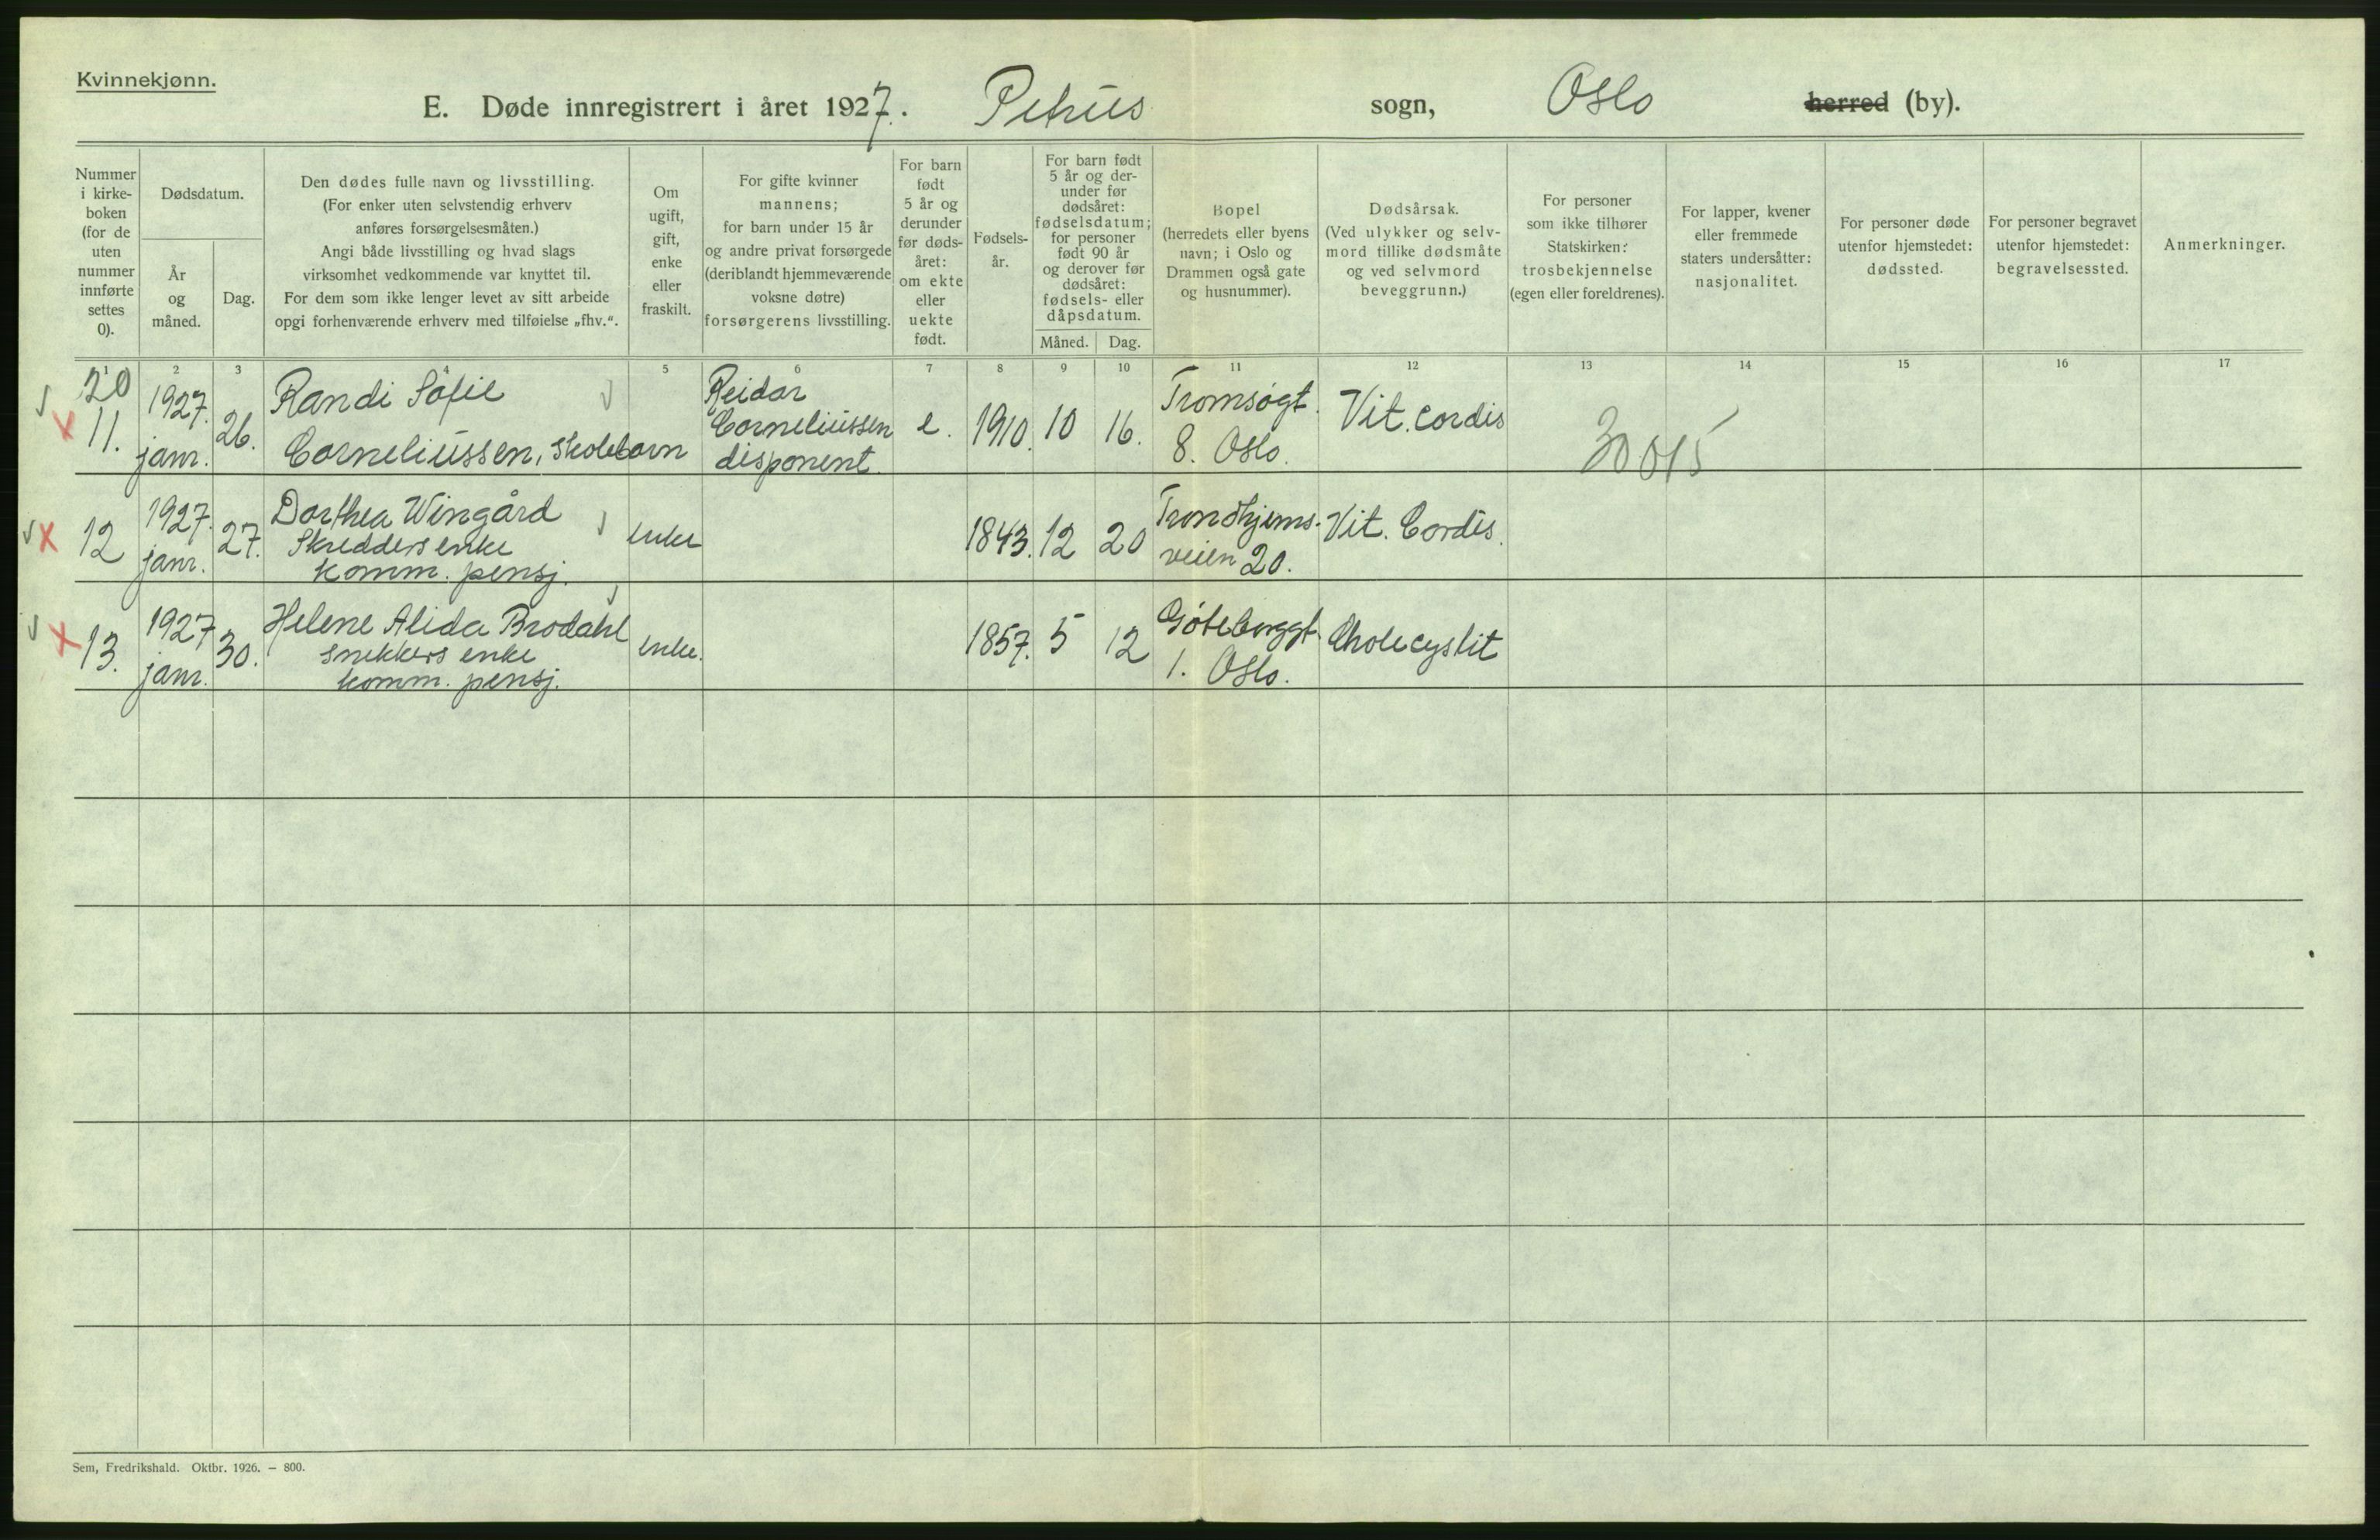 Kvinnekjønn.
E. Døde innregistrert i året 1927. Petrus sogn, Oslo herred (by).
Nummer
i kirke-
boken
(for de
uten
nummer
innførte
settes
0).
Dødsdatum.
År
og
måned.
Dag.
Den dødes fulle navn og livsstilling.
(For enker uten selvstendig erhverv
anføres forsørgelsesmåten.)
Angi både livsstilling og hvad slags
virksomhet vedkommende var knyttet til.
For dem som ikke lenger levet av sitt arbeide
opgi forhenværende erhverv med tilføielse „fhv.“.
Om
ugift,
gift,
enke
eller
fraskilt.
For gifte kvinner
mannens;
for barn under 15 år
og andre privat forsørgede
(deriblandt hjemmeværende
voksne døtre)
forsørgerens livsstilling.
For barn
født
5 år og
derunder
før døds-
året:
om ekte
eller
uekte
født.
Fødsels-
år.
For barn født
5 år og der-
under før
dødsåret:
fødselsdatum;
for personer
født 90 år
og derover før
dødsåret:
fødsels- eller
dåpsdatum.
Måned. Dag.
Bopel
(herredets eller byens
navn; i Oslo og
Drammen også gate
og husnummer).
Dødsårsak.
(Ved ulykker og selv-
mord tillike dødsmåte
og ved selvmord
beveggrunn.)
For personer
som ikke tilhører
Statskirken:
trosbekjennelse
(egen eller foreldrenes).
For lapper, kvener
eller fremmede
staters undersåtter:
nasjonalitet.
For personer døde
utenfor hjemstedet:
dødssted.
For personer begravet
utenfor hjemstedet:
begravelsessted.
Anmerkninger.
1 2 3 4 5 6 7 8 9 10 11 12 13 14 15 16 17
20
11.
1927.
janr.
26.
Randi Sofie
Corneliussen, Skolebarn
Reidar
Corneliussen
disponent.
e.
1910.
10
16.
Tromsøgt.
8. Oslo.
Vit. cordis
30 015
12
1927.
janr.
27.
Dorthea Wingård
Skredders enke
komm. pensj.
enke
1843.
12
20
Trondhjems-
veien 20.
Vit. Cordis.
13.
1927
janr.
30.
Helene Alida Brodahl
snekkers enke
komm. pensj.
enke.
1857.
5
12
Göteborggt.
1. Oslo.
Cholecystit
Sem, Fredrikshald. Oktbr. 1926. — 800.